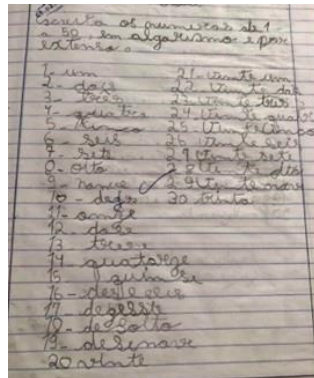 escreva os numeros de 1
a 50, em algarismo e por
extenso.
1- um
2- dois
3- três
4- quatro
5- sinco
6- seis
7- sete
8- oito
9- nove
10- des
11- onze
12- doze
13- treze
14 quatorze
15 quinse
16- des e ceis
17 desesste
18- desoito
19- desenove
20 vinte
21- vinte um
22- vinte dois
23- vinte tres
24- vinte quatro
25- vinte cinco
26 vinte seis
29 vinte sete
28 vinte oito
29 vinte nove
30 trinta